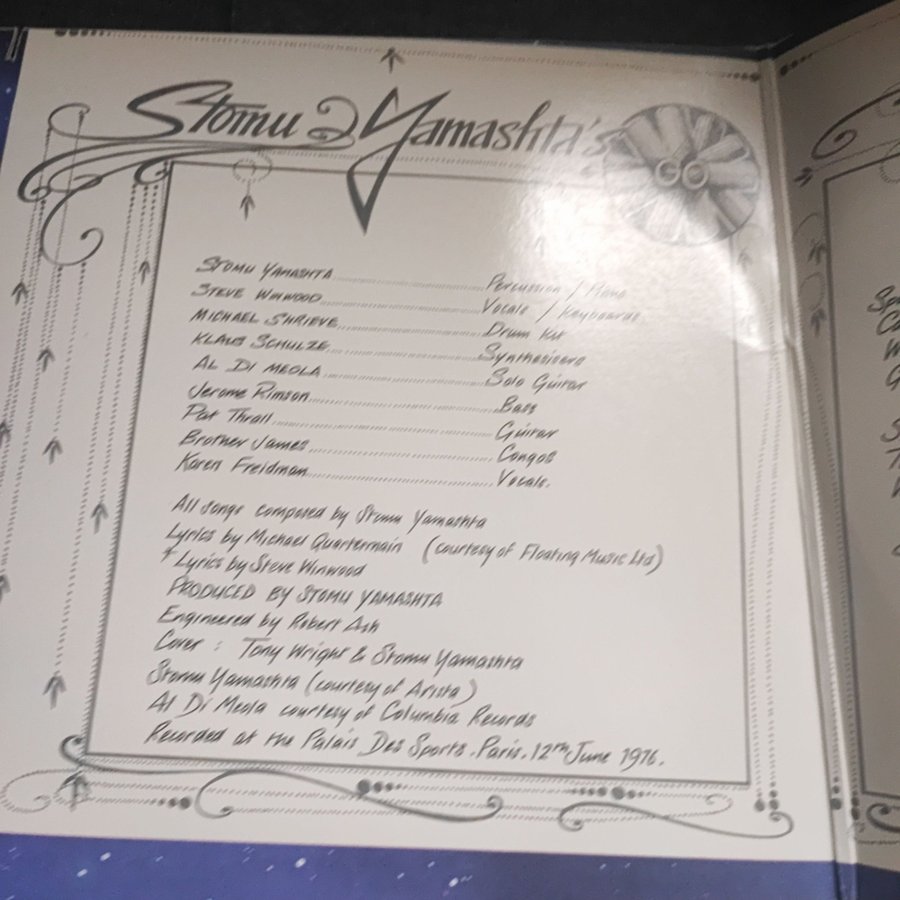 Stomu Yamashta's GO
Stomu Yamashta Percussion / Piano
Steve Winwood Vocals / Keyboards
Michael Shrieve Drum Kit
Klaus Schulze Synthesisers
Al Di Meola Solo Guitar
Jerome Rimson Bass
Pat Thrall Guitar
Brother James Congos
Karen Freidman Vocals.
All songs composed by Stomu Yamashta
Lyrics by Michael Quartermain (courtesy of Floating Music Ltd)
+ Lyrics by Steve Winwood
PRODUCED BY STOMU YAMASHTA
Engineered by Robert Ash
Cover : Tony Wright & Stomu Yamashta
Stomu Yamashta (courtesy of Arista)
Al Di Meola courtesy of Columbia Records
Recorded at the Palais Des Sports. Paris. 12th June 1976.